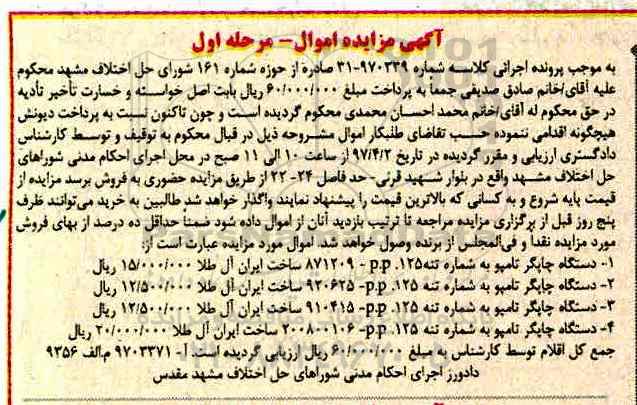 آگهی مزایده اموال - مرحله اول
به موجب پرونده اجرائی کلاسه شماره ۹۷۰۳۳۹-۳۱ صادره از حوزه شماره ۱۶۱ شورای حل اختلاف مشهد محکوم
علیه آقای/خانم صادق صدیقی جمعا به پرداخت مبلغ ۶۰/۰۰۰/۰۰۰ ریال بابت اصل خواسته و خسارت تأخیر تأدیه
در حق محکوم له آقای/خانم محمد احسان محمدی محکوم گردیده است و چون تاکنون نسبت به پرداخت دیونش
هیچگونه اقدامی ننموده حسب تقاضای طلبکار اموال مشروحه ذیل در قبال محکوم به توقیف و توسط کارشناس
دادگستری ارزیابی و مقرر گردیده در تاریخ ۹۷/۴/۲ از ساعت ۱۰ الی ۱۱ صبح در محل اجرای احکام مدنی شوراهای
حل اختلاف مشهد واقع در بلوار شهید قرنی- حد فاصل ۲۴- ۲۲ از طریق مزایده حضوری به فروش برسد مزایده از
قیمت پایه شروع و به کسانی که بالاترین قیمت را پیشنهاد نمایند واگذار خواهد شد طالبین به خرید می‌توانند ظرف
پنج روز قبل از برگزاری مزایده مراجعه تا ترتیب بازدید آنان از اموال داده شود ضمنا حداقل ده درصد از بهای فروش
مورد مزایده نقدا و فی‌المجلس از برنده وصول خواهد شد. اموال مورد مزایده عبارت است از:
۱- دستگاه چاپگر تامپو به شماره تنه ۱۲۵. p.p - ۸۷۱۲۰۹ ساخت ایران آل طلا ۱۵/۰۰۰/۰۰۰ ریال
۲- دستگاه چاپگر تامپو به شماره تنه ۱۲۵. p.p- ۹۲۰۶۲۵ ساخت ایران آل طلا ۱۲/۵۰۰/۰۰۰ ریال
۳- دستگاه چاپگر تامپو به شماره تنه ۱۲۵. p.p- ۹۱۰۴۱۵ ساخت ایران آل طلا ۱۲/۵۰۰/۰۰۰ ریال
۴- دستگاه چاپگر تامپو به شماره تنه ۱۲۵. p.p- ۲۰۰۸۰۰۱۰۶ ساخت ایران آل طلا ۲۰/۰۰۰/۰۰۰ ریال
جمع کل اقلام توسط کارشناس به مبلغ ۶۰/۰۰۰/۰۰۰ ریال ارزیابی گردیده است. آ- ۹۷۰۳۳۷۱ م.الف ۹۳۵۶
دادورز اجرای احکام مدنی شوراهای حل اختلاف مشهد مقدس